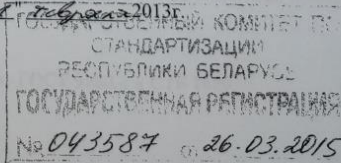 февраля 2013г.
ГОСУДАРСТВЕННЫЙ КОМИТЕТ ПО
СТАНДАРТИЗАЦИИ
РЕСПУБЛИКИ БЕЛАРУСЬ
ГОСУДАРСТВЕННАЯ РЕГИСТРАЦИЯ
№ 043587 от 26.03.2015